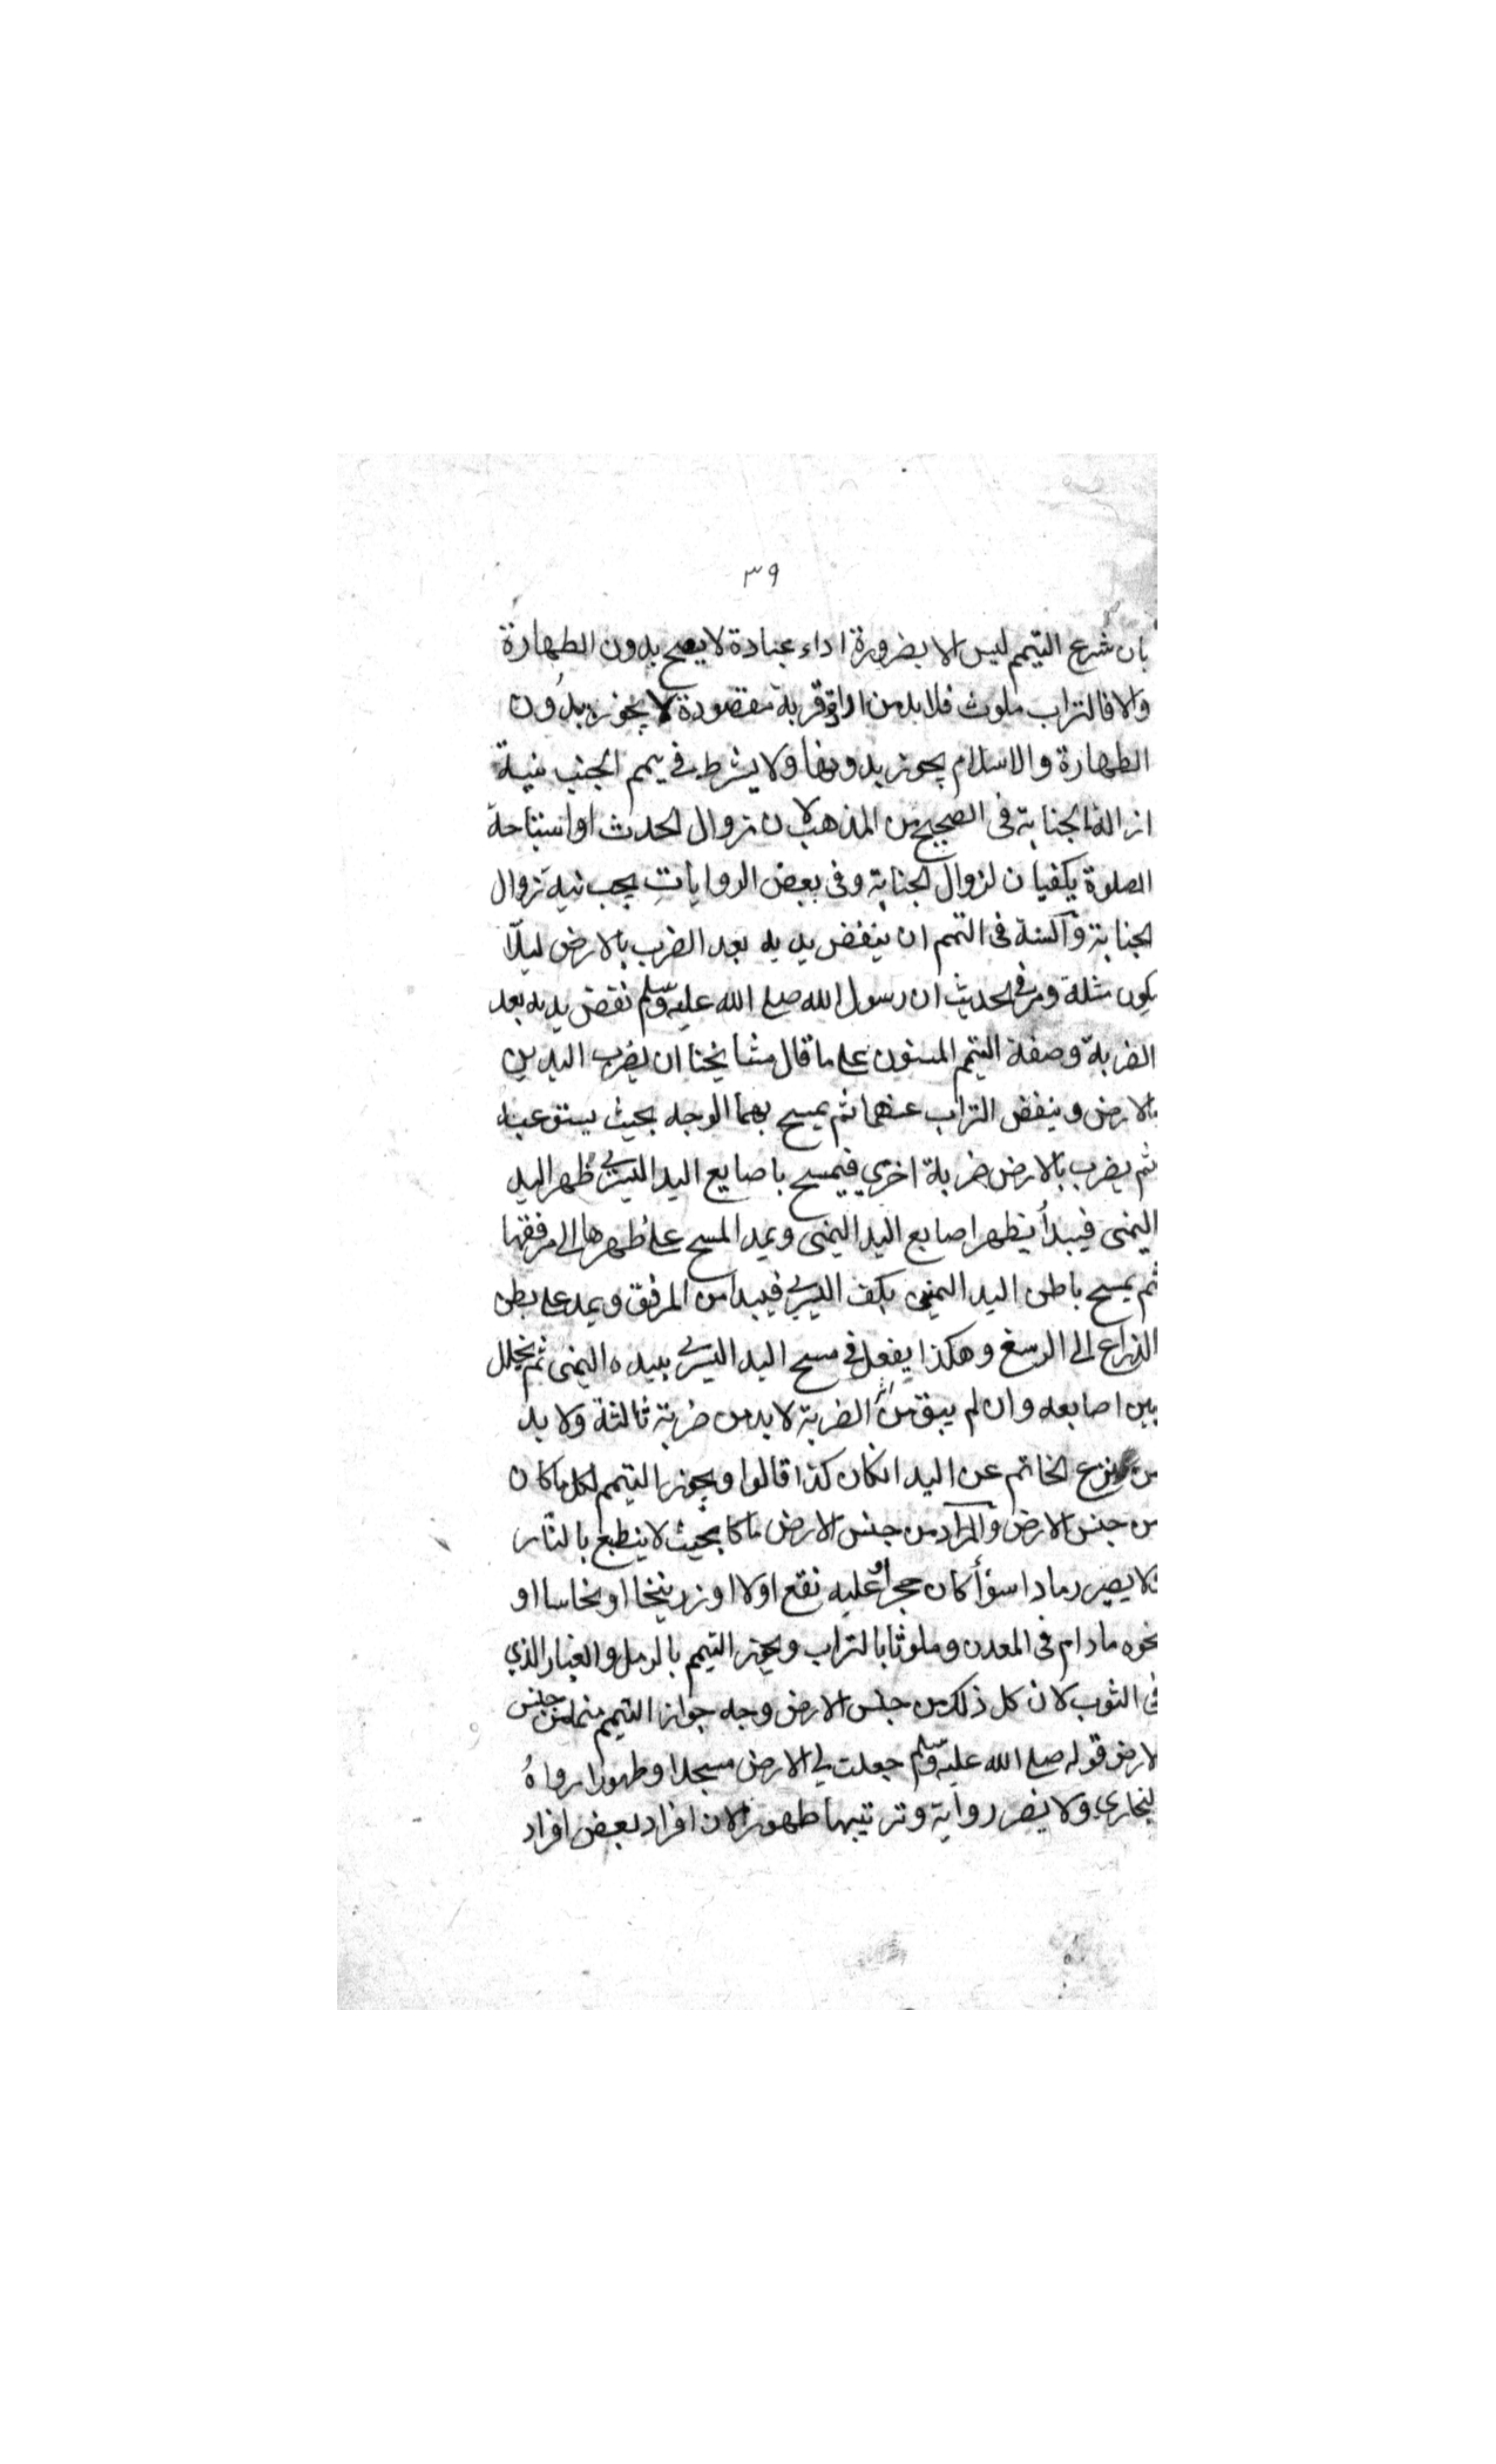 ٣٩
بان شرع التيمم ليس الا بضرورة اداء عبادة لا يصح بدون الطهارة
والا فالتراب ملوث فلا بد من اداء قربة مقصودة لا يجوز بدون
الطهارة والاسلام يجوز بدونها ولا يشرط في تيمم الجنب نية
ازالة الجنابة فى الصحيح من المذهب لان زوال الحدث او استباحة
الصلوة يكفيان لزوال الجنابة وفى بعض الروايات يجب نية زوال
الجنابة والسنة فى التمم ان ينفض يديه بعد الضرب بالارض ليلّا
يكون مثلة وفى الحديث ان رسول الله صلى الله عليه وسلم نفض يديه بعد
الضربة وصفة التيمم المسنون على ما قال مشايخنا ان يضرب اليدين
بالارض وينفض التراب عنهما ثم يمسح بهما الوجه بحيث يستوعبه
ثم يضرب بالارض ضربة اخرى فيمسح باصابع اليد اليسرى ظهر اليد
اليمنى فيبدأ بظهر اصابع اليد اليمنى ويمد المسح على ظهرها الى مرفقها
ثم يمسح باطن اليد اليمنى بكف اليسرى فيبدا من المرفق ويمد على بطن
الذراع الى الرسغ وهكذا يفعل فى مسح اليد اليسرى بيده اليمنى ثم يخلل
بين اصابعه وان لم يبق من اثر الضربة لا بد من ضربة ثالثة ولا بد
من نزع الخاتم عن اليد انكان كذا قالوا ويجوز التيمم لكل ما كان
من جنس الارض والمراد من جنس الارض ما كا بحيث لا ينطبع بالنار
ولا يصير رمادا سوأ كان حجرا وعليه نقع اولا او زرنيخا او نحاسا او
نحوه مادام فى المعدن وملوثا بالتراب ويجوز التيمم بالرمل والغبار الذي
فى الثوب لان كل ذلك من جنس الارض وجه جواز التيمم من جنس
الارض قوله صلى الله عليه وسلم جعلت لى الارض مسجدا وطهورا رواهُ
البخاري ولا يضر رواية وتربتها طهورا لان افراد بعض افراد